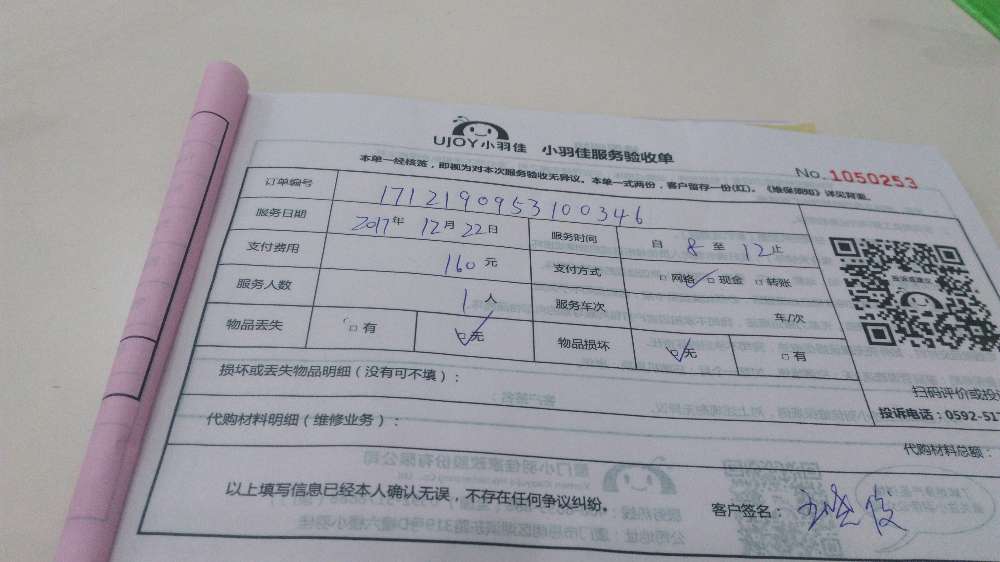 UJOY小羽佳 小羽佳服务验收单
No.1050253
本单一经核落，即视为对本次服务验收无异议。本单一式两份，客户留存一份(红)。《维保须知》详见背面。
订单编号 1712190953100346
服务日期 2017年 12月 22日 服务时间 自 8 至 12 止
支付费用 160 元 支付方式 □网络 □现金 □转账
服务人数 1 人 服务车次 车/次
物品丢失 □有 □无 物品损坏 □无 □有
损坏或丢失物品明细（没有可不填）：
扫码评价或投
代购材料明细（维修业务）：
投诉电话：0592-51
代购材料总额：
以上填写信息已经本人确认无误，不存在任何争议纠纷。
客户签名：